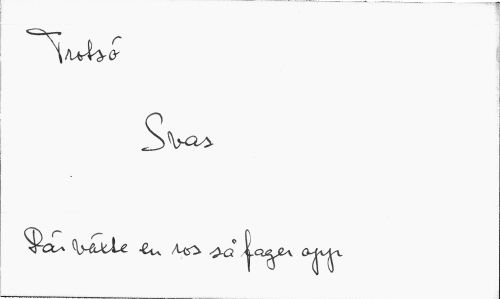 Trotsö
Svas
Där växte en ros så fager opp